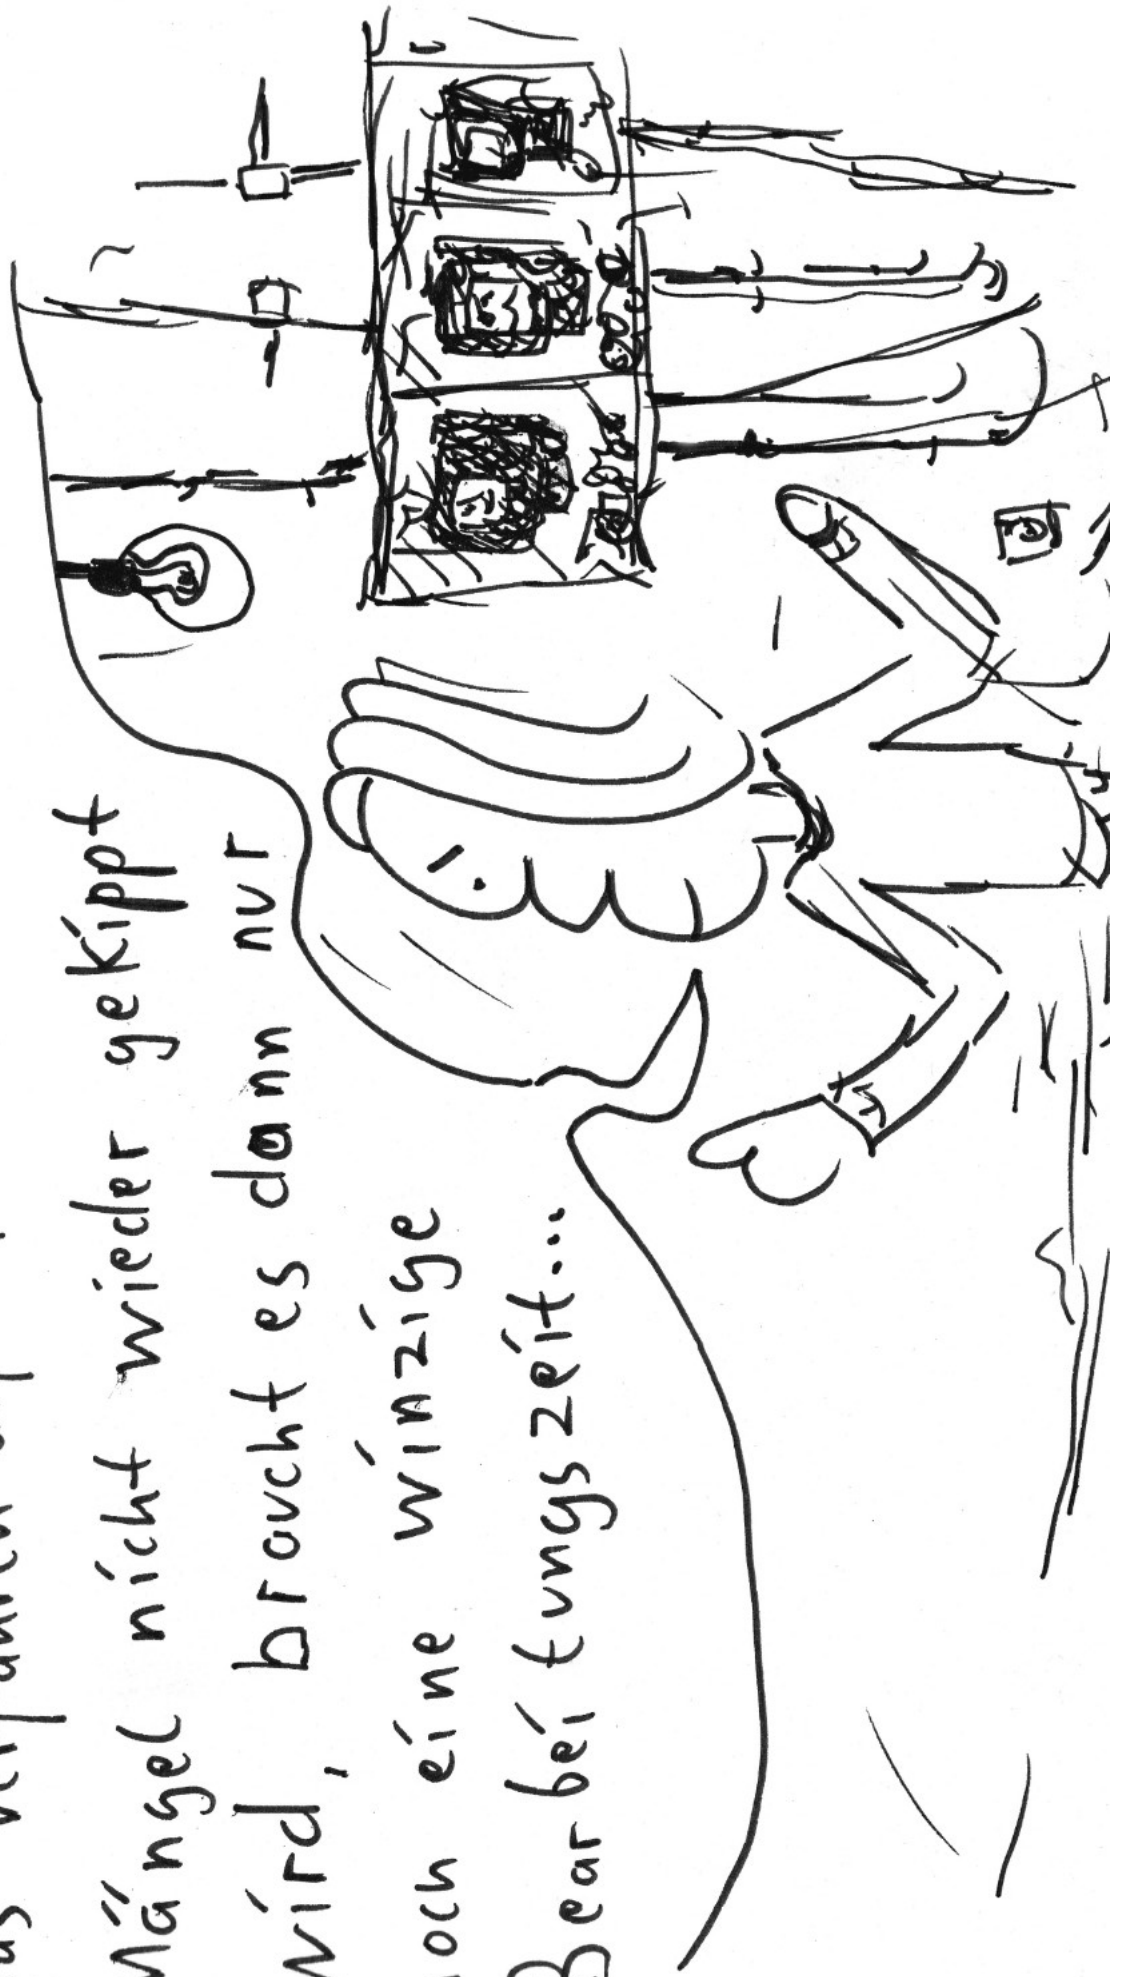 as Verfahren
Mängel nicht wieder gekippt
wird, braucht es dann nur
och eine winzige
Bearbeitungszeit...